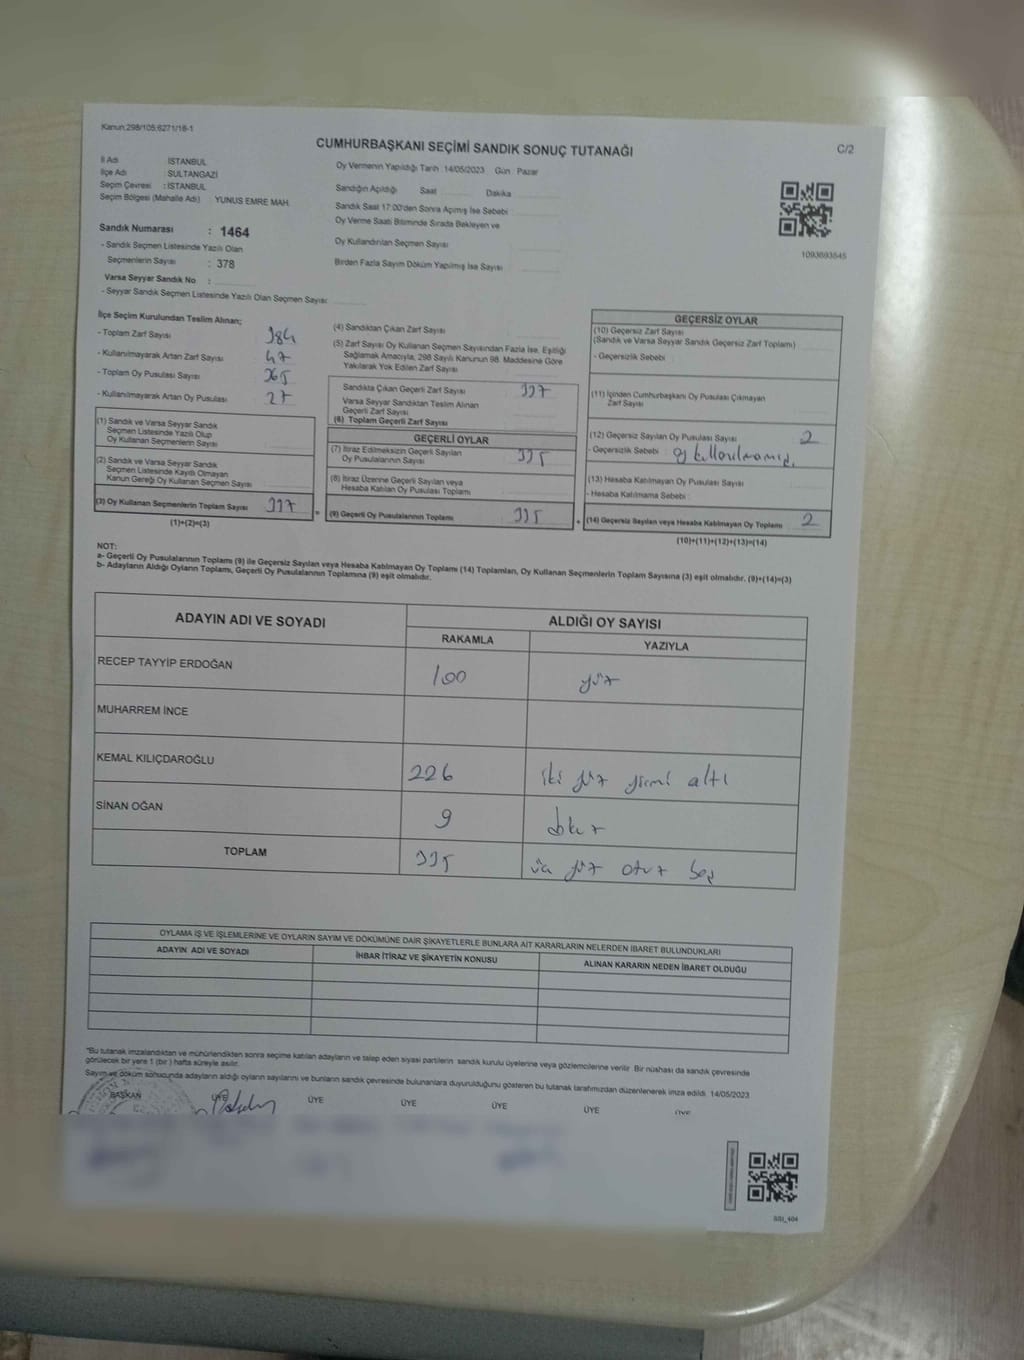 Kanun:298/105;6271/18-1
CUMHURBAŞKANI SEÇİMİ SANDIK SONUÇ TUTANAĞI
C/2
İl Adı : İSTANBUL
İlçe Adı : SULTANGAZİ
Seçim Çevresi : İSTANBUL
Seçim Bölgesi (Mahalle Adı) : YUNUS EMRE MAH.
Sandık Numarası : 1464
- Sandık Seçmen Listesinde Yazılı Olan
Seçmenlerin Sayısı : 378
Varsa Seyyar Sandık No :
- Seyyar Sandık Seçmen Listesinde Yazılı Olan Seçmen Sayısı:
Oy Vermenin Yapıldığı Tarih :14/05/2023 Gün : Pazar
Sandığın Açıldığı Saat Dakika
Sandık Saat 17:00'den Sonra Açımış İse Sebebi :
Oy Verme Saati Bitiminde Sırada Bekleyen ve
Oy Kullandırılan Seçmen Sayısı
Birden Fazla Sayım Döküm Yapılmış İse Sayısı :
1093693545
İlçe Seçim Kurulundan Teslim Alınan;
- Toplam Zarf Sayısı 384
- Kullanılmayarak Artan Zarf Sayısı 47
- Toplam Oy Pusulası Sayısı 365
- Kullanılmayarak Artan Oy Pusulası 27
(1) Sandık ve Varsa Seyyar Sandık
Seçmen Listesinde Yazılı Olup
Oy Kullanan Seçmenlerin Sayısı
(2) Sandık ve Varsa Seyyar Sandık
Seçmen Listesinde Kayıtlı Olmayan
Kanun Gereği Oy Kullanan Seçmen Sayısı
(3) Oy Kullanan Seçmenlerin Toplam Sayısı 337
(1)+(2)=(3)
(4) Sandıktan Çıkan Zarf Sayısı
(5) Zarf Sayısı Oy Kullanan Seçmen Sayısından Fazla İse, Eşitliği
Sağlamak Amacıyla, 298 Sayılı Kanunun 98. Maddesine Göre
Yakılarak Yok Edilen Zarf Sayısı
Sandıkta Çıkan Geçerli Zarf Sayısı 337
Varsa Seyyar Sandıktan Teslim Alınan
Geçerli Zarf Sayısı
(6) Toplam Geçerli Zarf Sayısı
GEÇERLİ OYLAR
(7) İtiraz Edilmeksizin Geçerli Sayılan
Oy Pusulalarının Sayısı 335
(8) İtiraz Üzerine Geçerli Sayılan veya
Hesaba Katılan Oy Pusulası Toplamı
= (9) Geçerli Oy Pusulalarının Toplamı 335
GEÇERSİZ OYLAR
(10) Geçersiz Zarf Sayısı
(Sandık ve Varsa Seyyar Sandık Geçersiz Zarf Toplamı)
- Geçersizlik Sebebi :
(11) İçinden Cumhurbaşkanı Oy Pusulası Çıkmayan
Zarf Sayısı
(12) Geçersiz Sayılan Oy Pusulası Sayısı 2
- Geçersizlik Sebebi : oy kullanılmamış.
(13) Hesaba Katılmayan Oy Pusulası Sayısı
- Hesaba Katılmama Sebebi :
+ (14) Geçersiz Sayılan veya Hesaba Katılmayan Oy Toplamı 2
(10)+(11)+(12)+(13)=(14)
NOT:
a- Geçerli Oy Pusulalarının Toplamı (9) ile Geçersiz Sayılan veya Hesaba Katılmayan Oy Toplamı (14) Toplamları, Oy Kullanan Seçmenlerin Toplam Sayısına (3) eşit olmalıdır. (9)+(14)=(3)
b- Adayların Aldığı Oyların Toplamı, Geçerli Oy Pusulalarının Toplamına (9) eşit olmalıdır.
ADAYIN ADI VE SOYADI
ALDIĞI OY SAYISI
RAKAMLA YAZIYLA
RECEP TAYYİP ERDOĞAN 100 yüz
MUHARREM İNCE
KEMAL KILIÇDAROĞLU 226 iki yüz yirmi altı
SİNAN OĞAN 9 dokuz
TOPLAM 335 üç yüz otuz beş
OYLAMA İŞ VE İŞLEMLERİNE VE OYLARIN SAYIM VE DÖKÜMÜNE DAİR ŞİKAYETLERLE BUNLARA AİT KARARLARIN NELERDEN İBARET BULUNDUKLARI
ADAYIN ADI VE SOYADI İHBAR İTİRAZ VE ŞİKAYETİN KONUSU ALINAN KARARIN NEDEN İBARET OLDUĞU
"Bu tutanak imzalandıktan ve mühürlendikten sonra seçime katılan adayların ve talep eden siyasi partilerin sandık kurulu üyelerine veya gözlemcilerine verilir. Bir nüshası da sandık çevresinde
görülecek bir yere 1 (bir) hafta süreyle asılır.
Sayım ve döküm sonucunda adayların aldığı oyların sayılarını ve bunların sandık çevresinde bulunanlara duyurulduğunu gösteren bu tutanak tarafımızdan düzenlenerek imza edildi. 14/05/2023
BAŞKAN ÜYE ÜYE ÜYE ÜYE ÜYE ÜYE
SSI_404